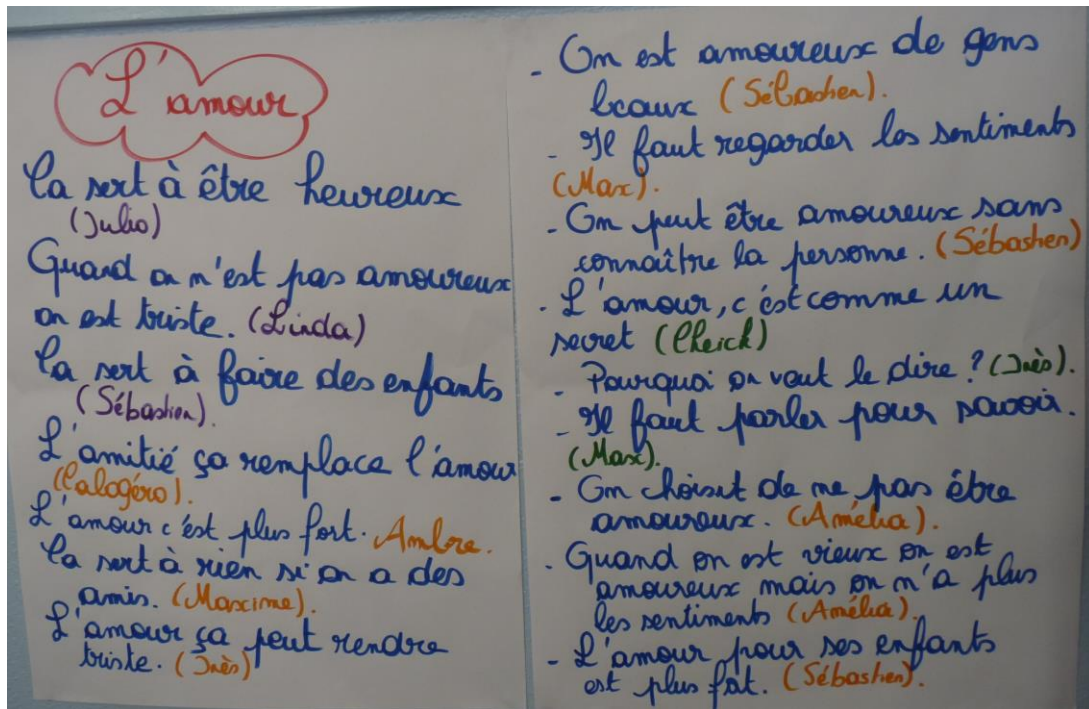 L'amour
Ça sert à être heureux
(Julio)
Quand on n'est pas amoureux
on est triste. (Linda)
Ça sert à faire des enfants
(Sébastien).
L'amitié ça remplace l'amour
(Calogéro).
L'amour c'est plus fort. Ambre.
Ça sert à rien si on a des
amis. (Maxime).
L'amour ça peut rendre
triste. (Inès)
- On est amoureux de gens
beaux (Sébastien).
- Il faut regarder les sentiments
(Max).
- On peut être amoureux sans
connaître la personne. (Sébastien)
- L'amour, c'est comme un
secret (Cheick)
- Pourquoi on veut le dire ? (Inès).
- Il faut parler pour savoir.
(Max).
- On choisit de ne pas être
amoureux. (Amélia).
- Quand on est vieux on est
amoureux mais on n'a plus
les sentiments (Amélia).
- L'amour pour ses enfants
est plus fort. (Sébastien).